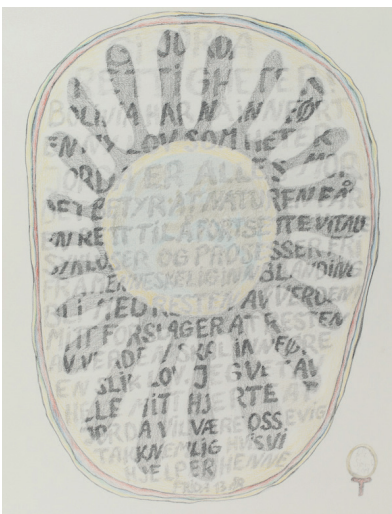 JORDA
RETTIGHETER
BOLIVIA HAR NÅ INNFØRT
EN LOV SOM HETER
ALLE
BETYR AT NATUREN FÅR
EN RETT TIL Å FORTSETTE VITALE
SYKLUSER OG PROSESSER
FRA MENNESKELIG INNBLANDING
MED RESTEN AV VERDEN
MITT FORSLAG ER AT RESTEN
AV VERDEN SKAL INNFØRE
EN SLIK LOV JEG VET AV
HELE MITT HJERTE AT
JORDA VIL VÆRE OSS EVIG
TAKKNEMLIG HVIS VI
HJELPER HENNE